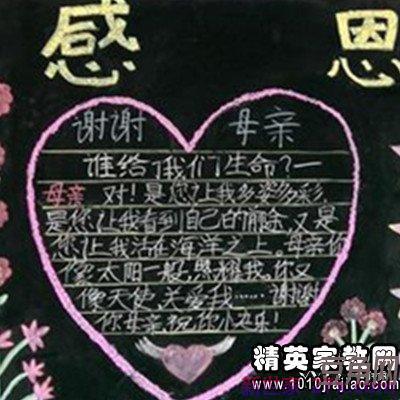 感恩
谢谢 母亲
谁给了我们生命?一
母亲 对!是您让我多姿多彩
是您让我看到自己的前途,又是
您让我活在海洋之上,母亲你
像太阳一般,照耀我,你又
像天使,关爱我……谢谢
你母亲,祝你快乐!
精英家教网
www.1010jiajiao.com